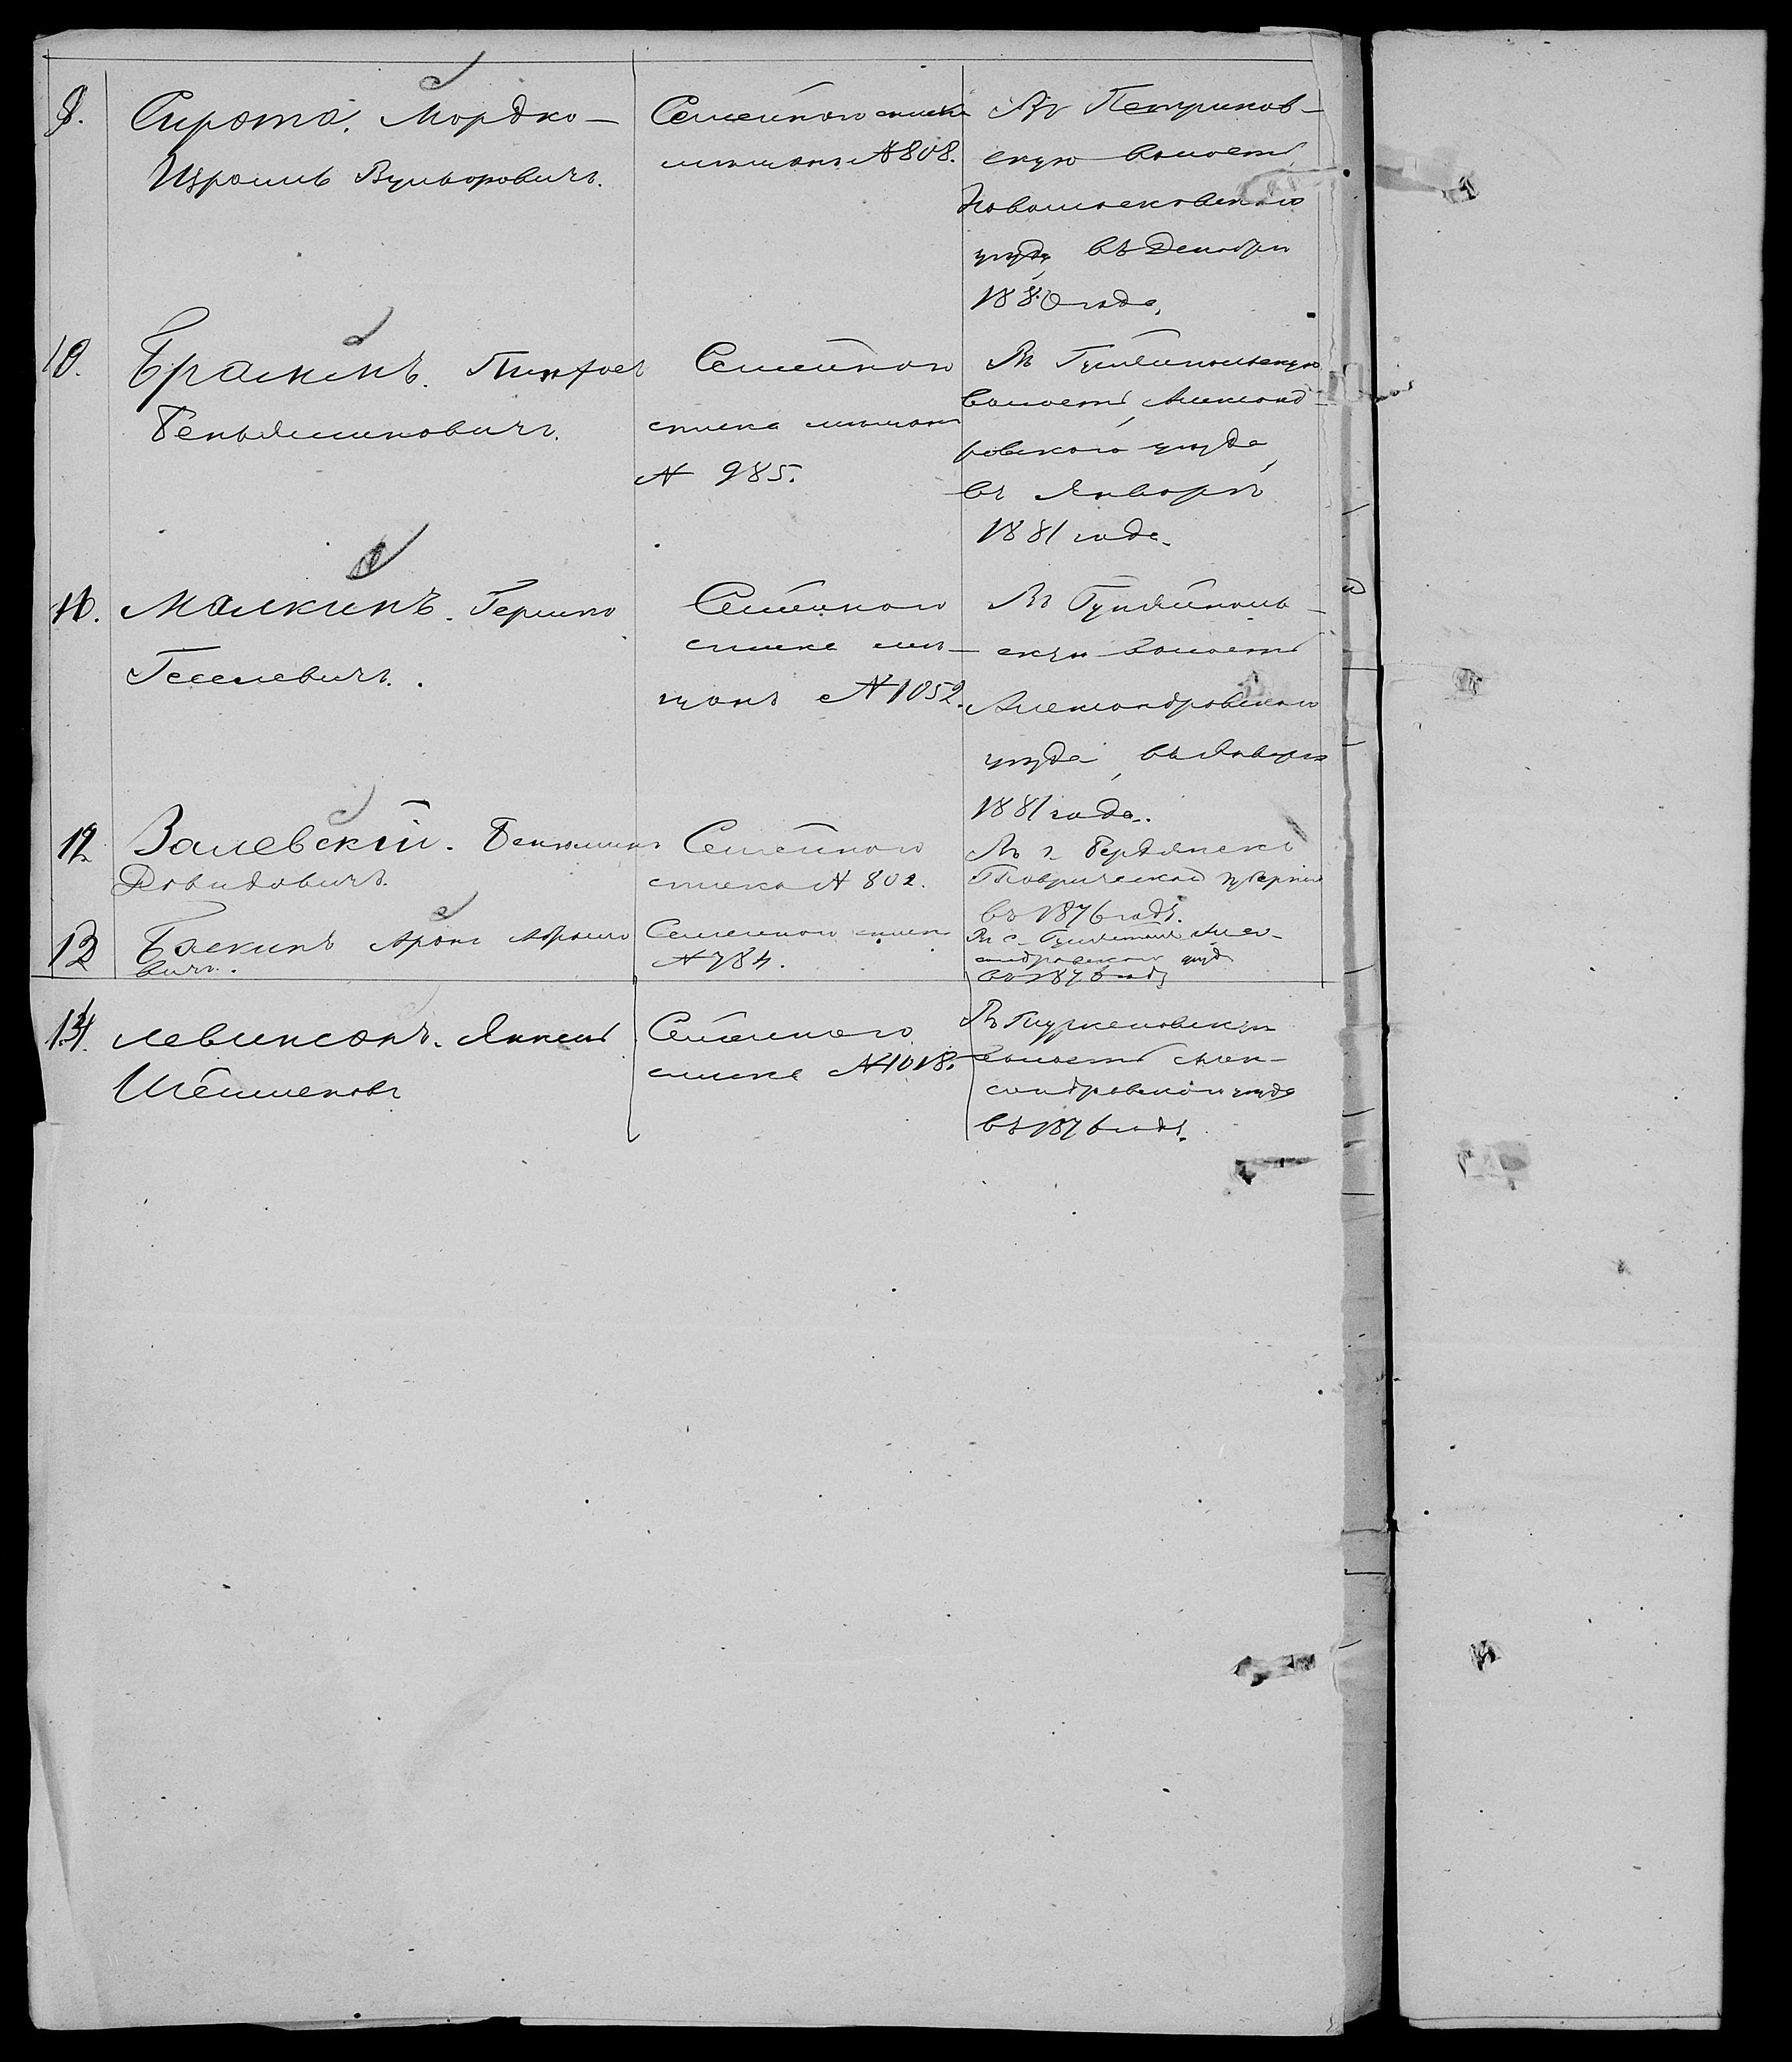 9. Сирота. Мордко-
Израиль Вульфовичъ.
Семейного списка
мѣщанъ № 808.
Въ Петриков-
скую волость,
Новомосковского
уѣзда, въ Декабрѣ
1880 года.
10. Брамкинъ. Пинхос
Беньяминовичъ.
Семейного
списка мѣщанъ
№ 985.
Въ Гуляйпольскую
волость, Александ-
ровского уѣзда,
въ Январѣ
1881 года.
11. Малкинъ. Гершко
Геселевичъ.
Семейного
списка мѣ-
щанъ № 1052.
Въ Гуляйполь-
скую волость
Александровского
уѣзда, въ Январѣ
1881 года.
12 Залевскій. Бениминъ
Довидовичъ.
Семейного
списка № 802.
Въ г. Бердянскѣ
Таврической губерніи
въ 1876 годѣ.
13 Баскинъ Аронъ Абрамо
вичъ.
Семейного списка
№ 784.
Въ с. Гуляйполѣ Алек-
сандровского уѣзда
въ 1876 году
14. Левинсонъ. Янкель
Семейного
списка № 1018.
волость Алек-
сандровского уѣзда
въ 1876 годѣ.